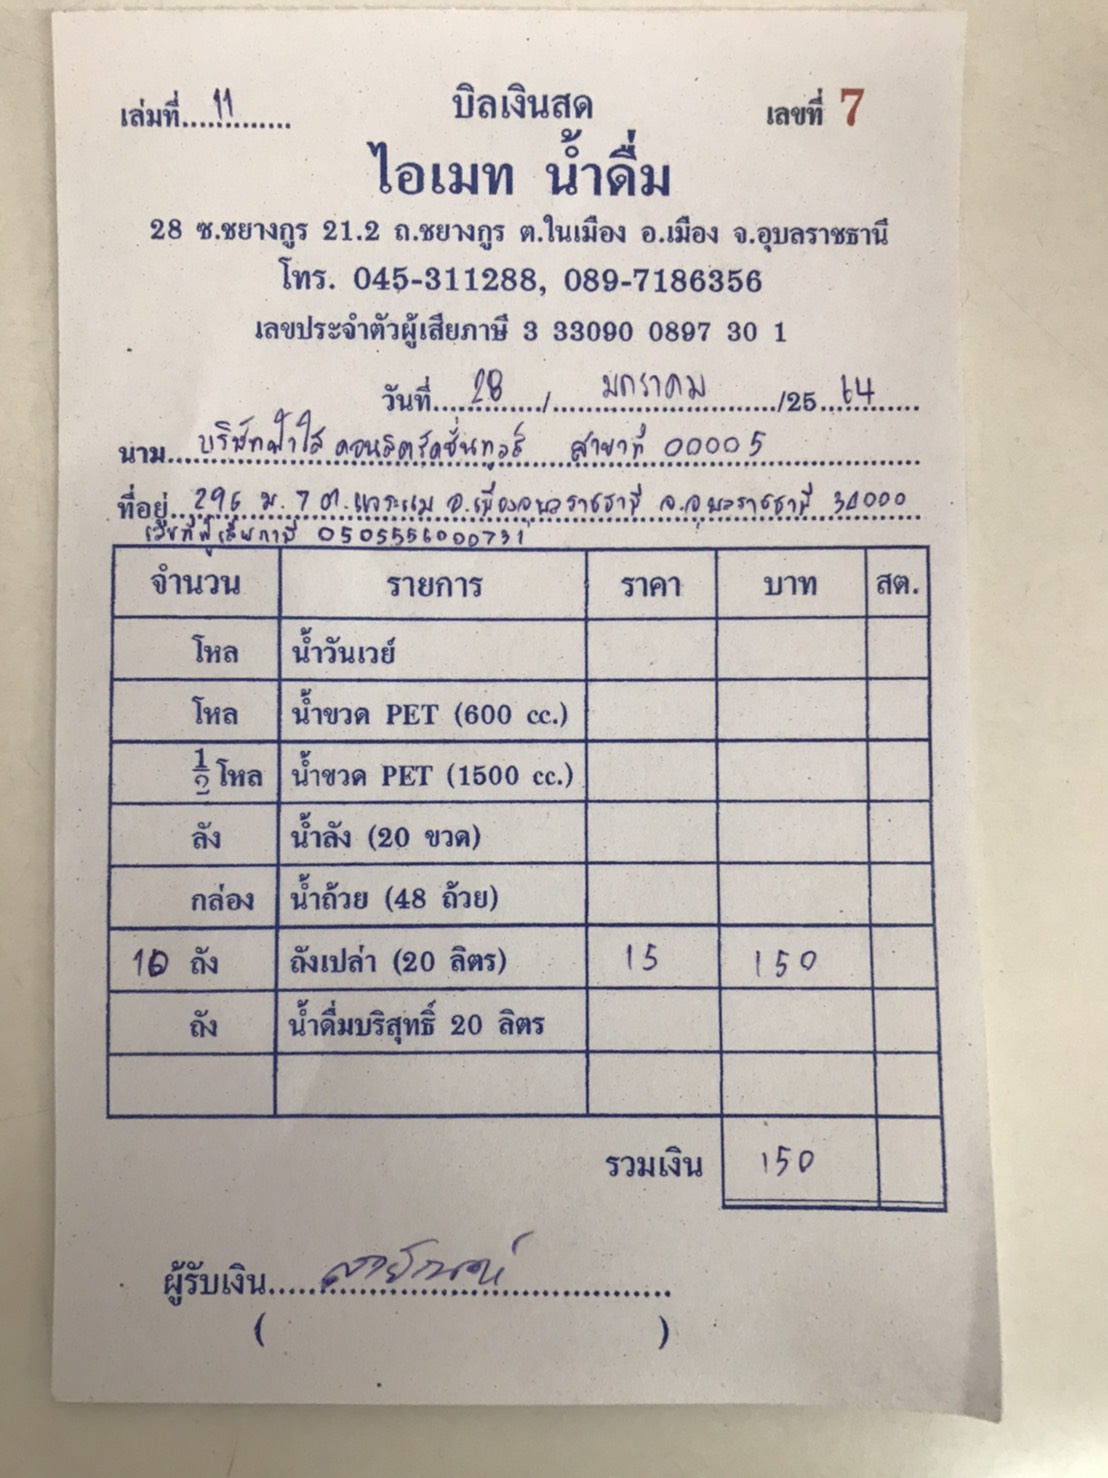 เล่มที่ 11 บิลเงินสด เลขที่ 7
ไอเมท น้ำดื่ม
28 ซ.ชยางกูร 21.2 ถ.ชยางกูร ต.ในเมือง อ.เมือง จ.อุบลราชธานี
โทร. 045-311288, 089-7186356
เลขประจำตัวผู้เสียภาษี 3 33090 0897 30 1
วันที่ 28 / มกราคม /25 64
นาม บริษัทฟ้าใส คอนสตรัคชั่นทูลส์ สาขาที่ 00005
ที่อยู่ 296 ม. 7 ต.แจระแม อ.เมืองอุบลราชธานี จ.อุบลราชธานี 34000
เลขที่ผู้เสียภาษี 0505556000731
จำนวน รายการ ราคา บาท สต.
โหล น้ำวันเวย์
โหล น้ำขวด PET (600 cc.)
1/2 โหล น้ำขวด PET (1500 cc.)
ลัง น้ำลัง (20 ขวด)
กล่อง น้ำถ้วย (48 ถ้วย)
10 ถัง ถังเปล่า (20 ลิตร) 15 150
ถัง น้ำดื่มบริสุทธิ์ 20 ลิตร
รวมเงิน 150
ผู้รับเงิน
( )